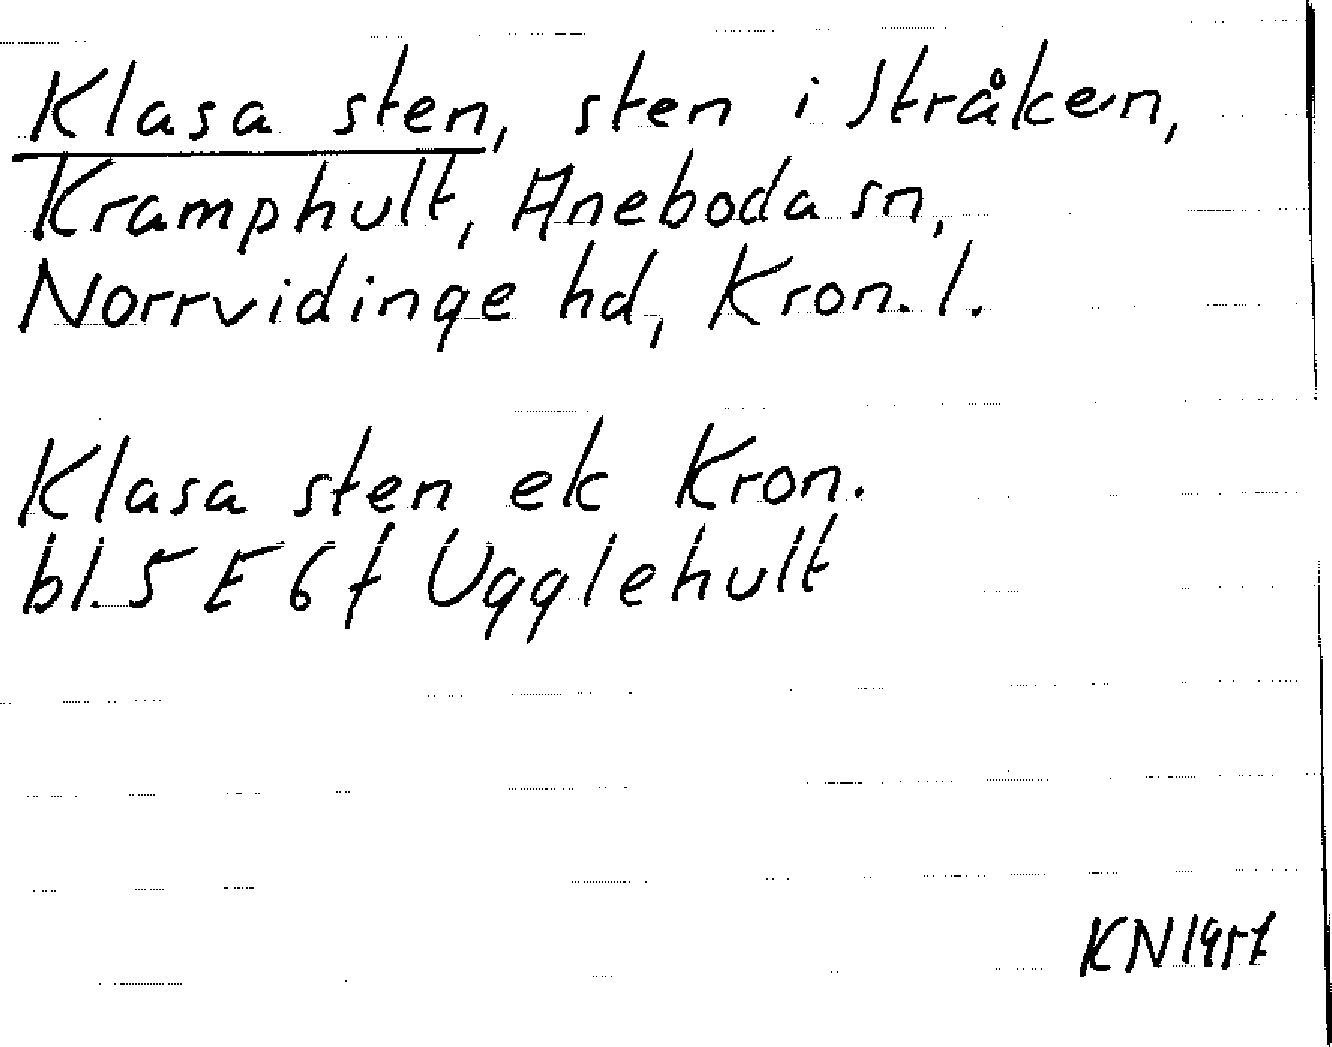 Klasa sten, sten i Stråken,
Kramphult, Aneboda sn,
Norrvidinge hd, Kron. l.
Klasa sten ek Kron.
bl. 5 E 6 f Ugglehult